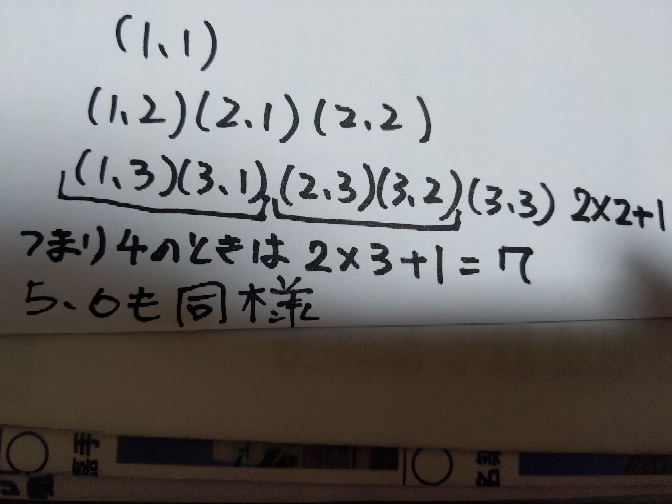 (1、1)
(1、2)(2、1)(2、2)
(1、3)(3、1)(2、3)(3、2)(3、3) 2×2+1
つまり4のときは 2×3+1=7
5、6も同様